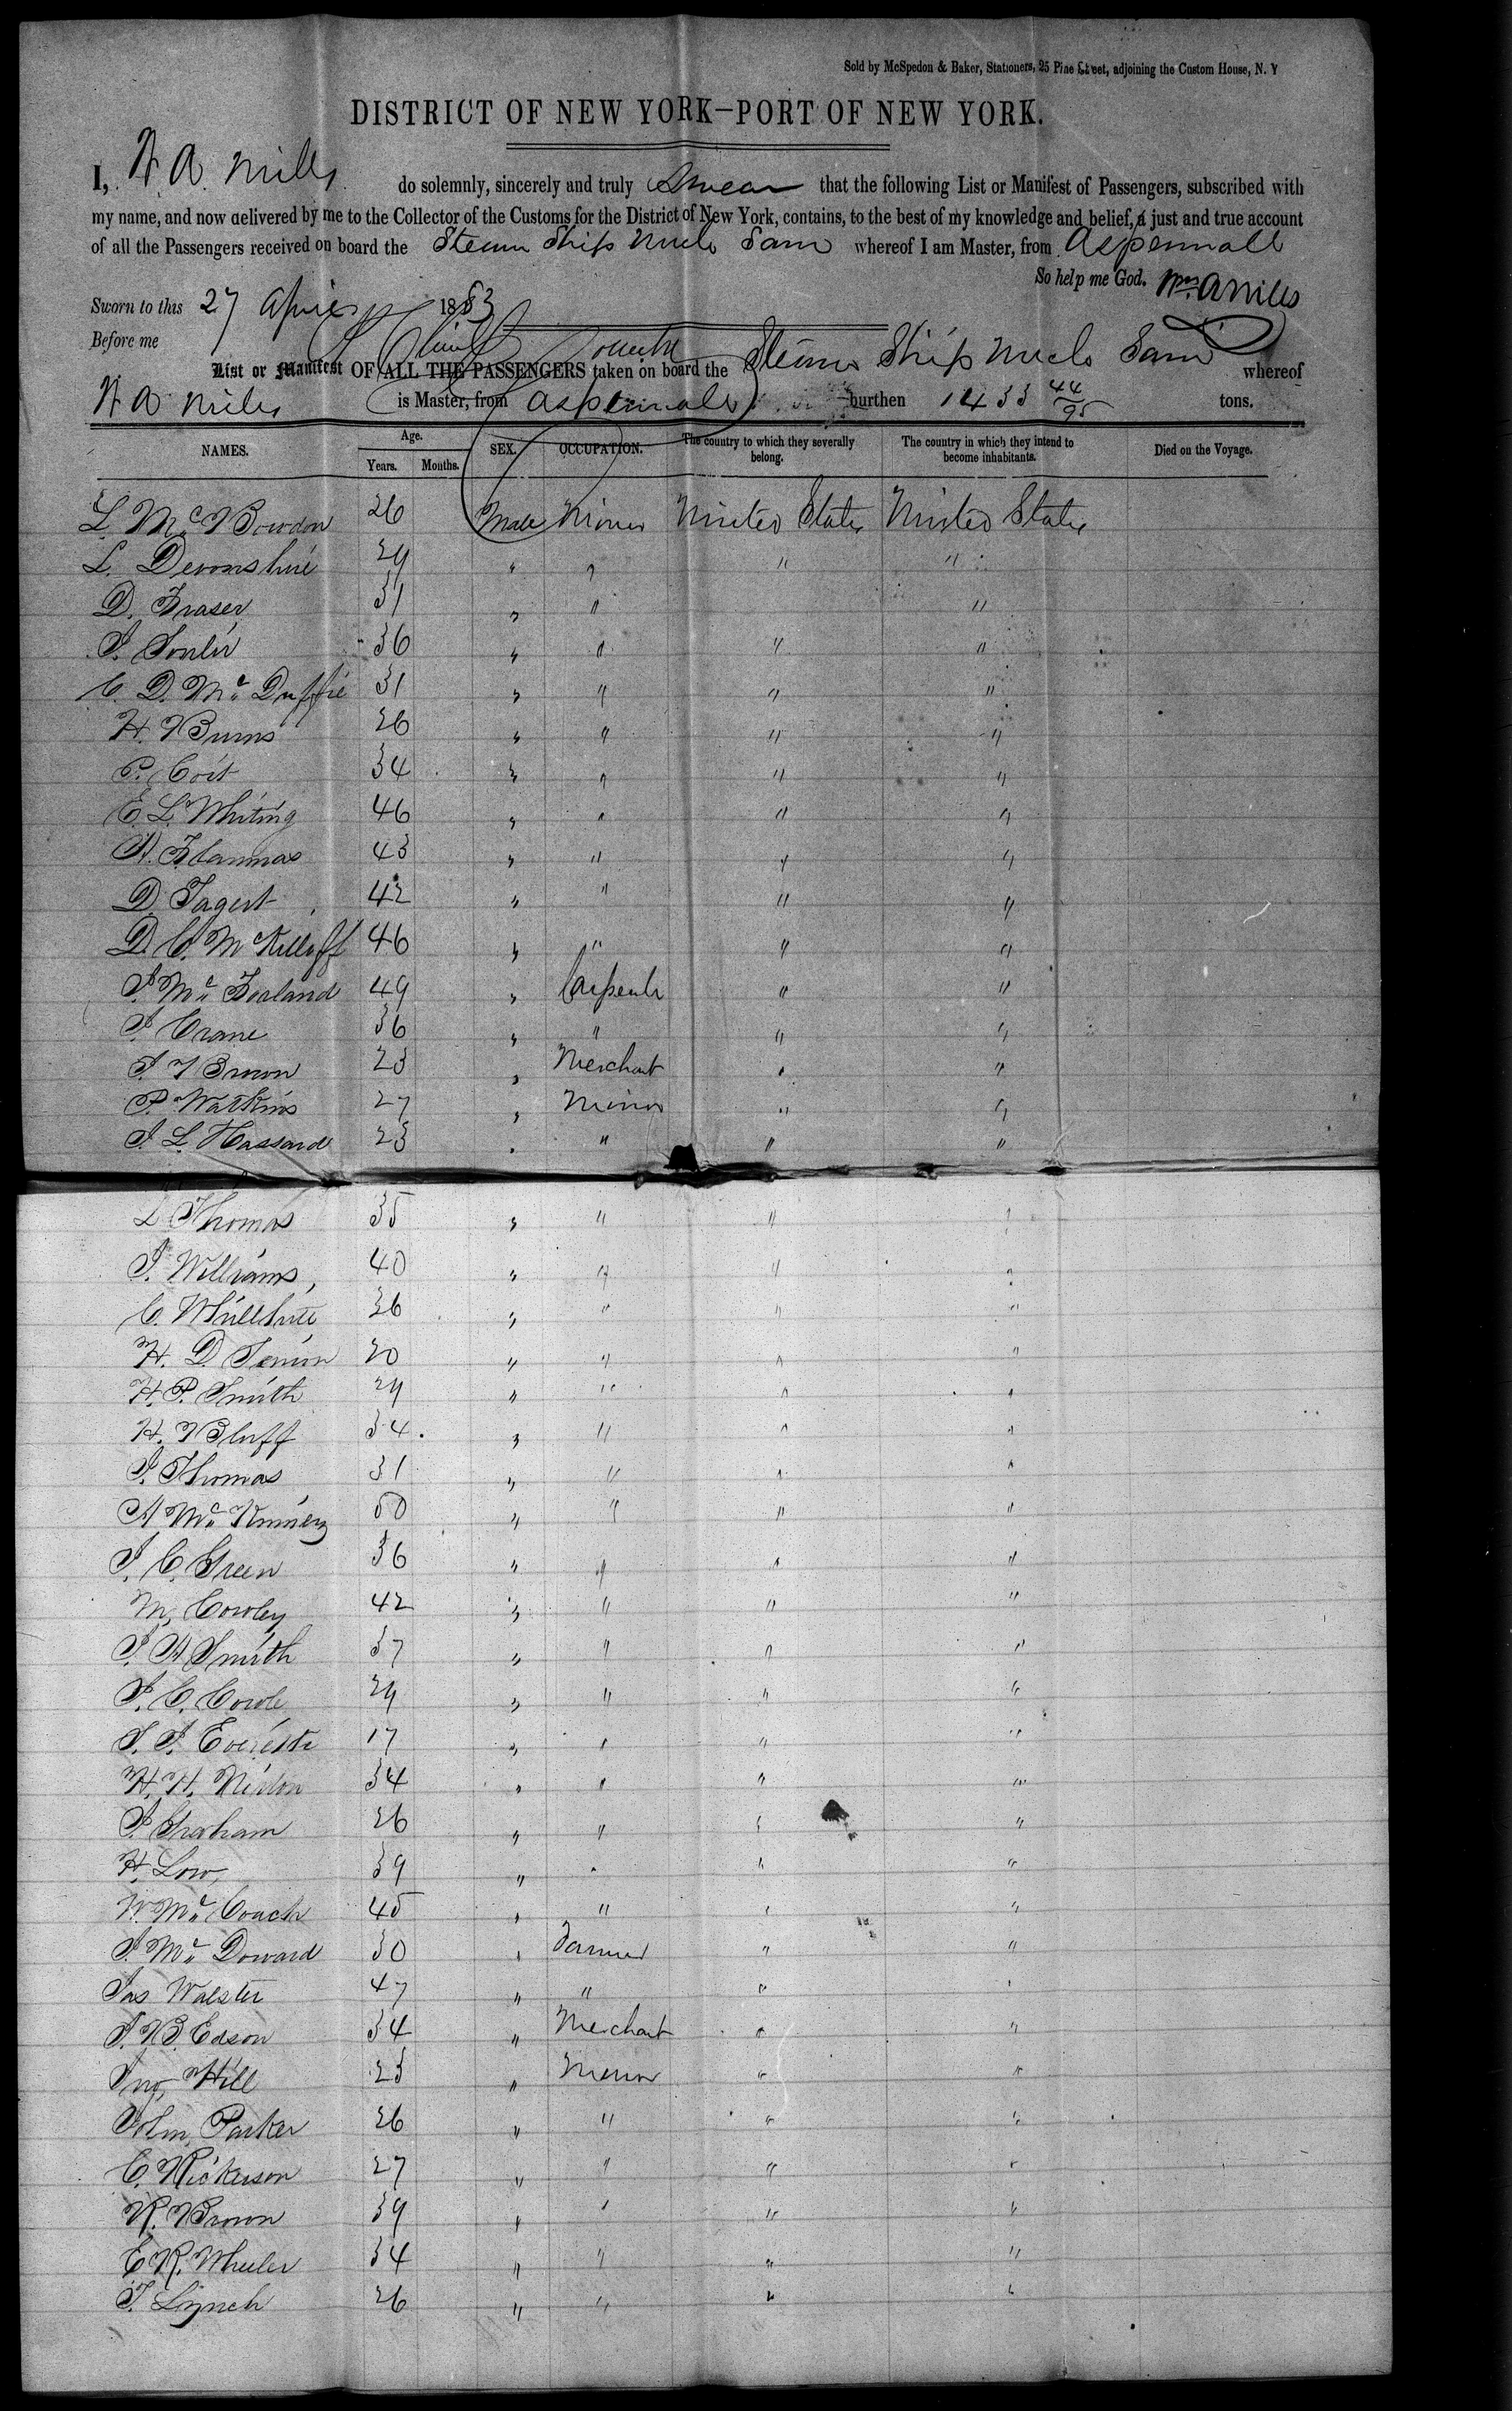 Sold by McSpedon & Baker, Stationers, 25 Pine Street, adjoining the Custom House, N. Y
DISTRICT OF NEW YORK—PORT OF NEW YORK.
I, W A Mills do solemnly, sincerely and truly Swear that the following List or Manifest of Passengers, subscribed with
my name, and now delivered by me to the Collector of the Customs for the District of New York, contains, to the best of my knowledge and belief, a just and true account
of all the Passengers received on board the Steam Ship Uncle Sam whereof I am Master, from Aspenwall
So help me God. Wm A Mills
Sworn to this 27 April 1853
Before me
List or Manifest OF ALL THE PASSENGERS taken on board the Steam Ship Uncle Sam whereof
W A Mills is Master, from Aspenwall burthen 1433 44/95 tons.
NAMES. Age. Years. Months. SEX. OCCUPATION. The country to which they severally belong. The country in which they intend to become inhabitants. Died on the Voyage.
L. Mc Bowdon 26 Male Miner United States United States
L. Devonshire 29 " " " "
D. Fraser 31 " " "
J. Souler 36 " " " "
C. D. Mc Duffie 31 " " " "
H. Burns 26 " " " "
P. Coit 34 " " " "
E. L. Whiting 46 " " " "
A. 43 " " " "
D. Tagert 42 " " " "
D. C. McKilloff 46 " " " "
J. Mc Farland 49 " Carpenter " "
J. Crane 36 " " " "
J. T Brown 23 " Merchant " "
P. Watkins 27 " Miner " "
J. L. Hassard 23 " " " "
L Thomas 35 " " " "
J. Williams, 40 " " " "
C. Whillhite 36 " " " "
H. D. 20 " " " "
H. P. Smith 29 " " " "
H. Bluff 34 " " " "
J. Thomas 31 " " " "
A Mc Kinnery 50 " " " "
J. C. Green 36 " " " "
M. Cowley 42 " " " "
J. A Smith 37 " " " "
J. C. Cowle 29 " " " "
S. J. Evereste 17 " " " "
H. H. Nixton 34 " " " "
J. Graham 26 " " " "
H. Low, 39 " " " "
W. Mc Coach 45 " " " "
J. Mc Doward 30 " Farmer " "
Jas Walster 47 " " " "
J. B. Edson 34 " Merchant " "
Jno, Hill 23 " Miner " "
John Parker 26 " " " "
C. Rickerson 27 " " " "
R. Brown 39 " " " "
E R. Wheeler 34 " " " "
T. Lynch 26 " " " "